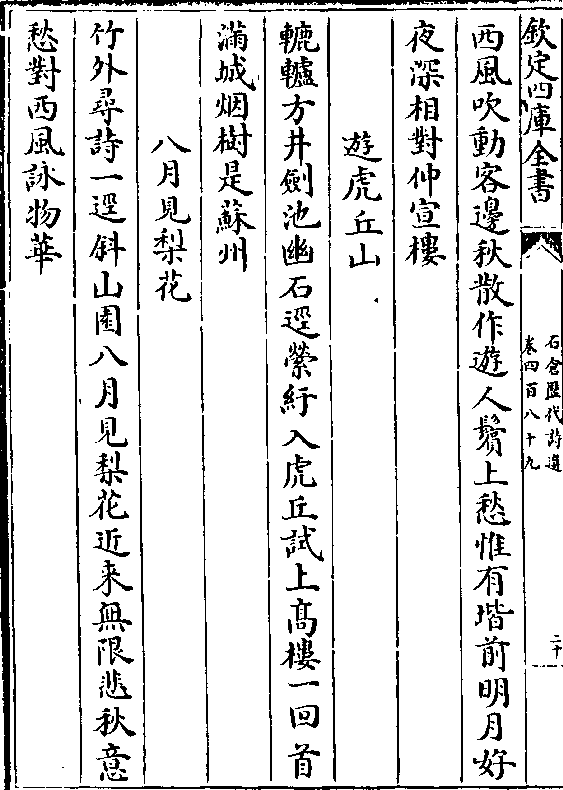 欽定四庫全書
石倉歷代詩選
卷四百八十九
二十
西風吹動客邊秋散作遊人鬢上愁惟有堦前明月好
夜深相對仲宣樓
遊虎丘山
轆轤方井劍池幽石逕縈紆入虎丘試上髙樓一回首
滿城烟樹是蘇州
八月見梨花
竹外尋詩一逕斜山園八月見梨花近来無限悲秋意
愁對西風詠物華